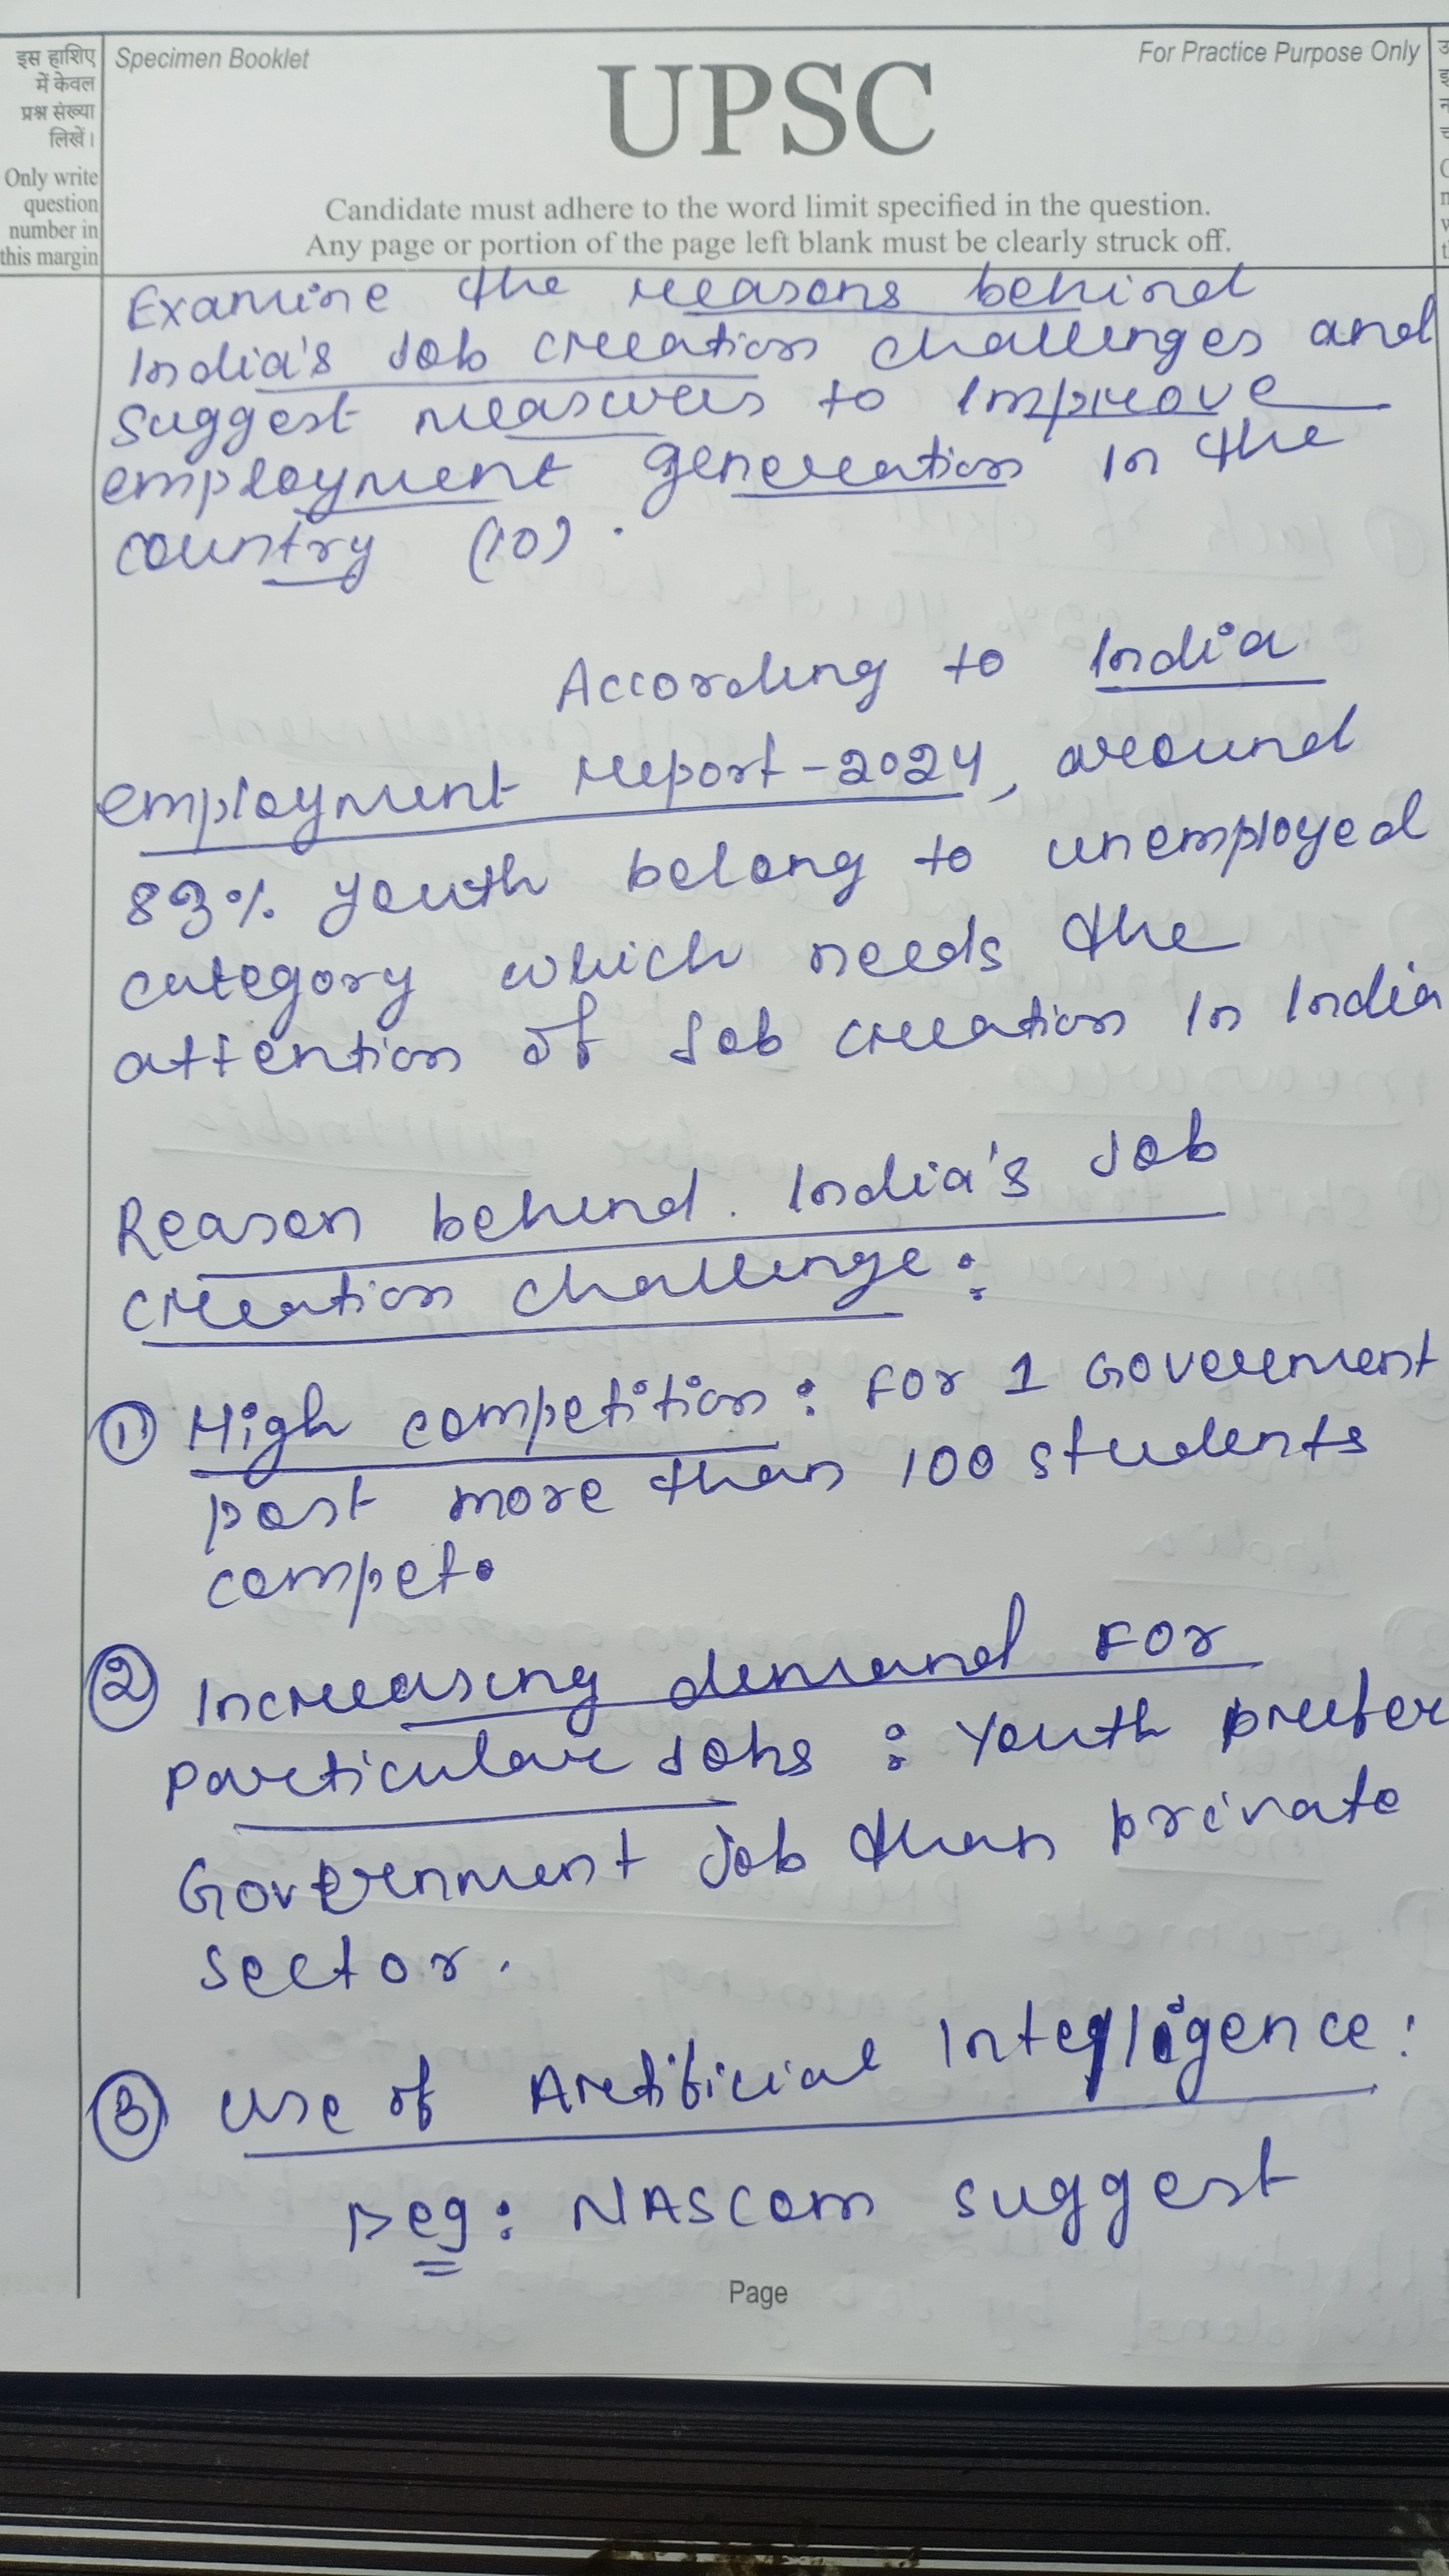 इस हाशिए
में केवल
प्रश्न संख्या
लिखें।
Only write
question
number in
this margin
Specimen Booklet
For Practice Purpose Only
UPSC
Candidate must adhere to the word limit specified in the question.
Any page or portion of the page left blank must be clearly struck off.
Examine the reasons behind
India's Job creation challenges and
suggest measures to improve
employment generation in the
country (10).
According to India
employment report-2024, around
83% youth belong to unemployed
category which needs the
attention of Job creation in India
Reason behind. India's Job
creation challenge:
① High competition: For 1 Government
post more than 100 students
compet.
② Increasing demand For
particular Jobs: Youth prefer
Government Job than private
sector.
③ Use of Artificial Intelligence:
eg: NASCOM suggest
Page